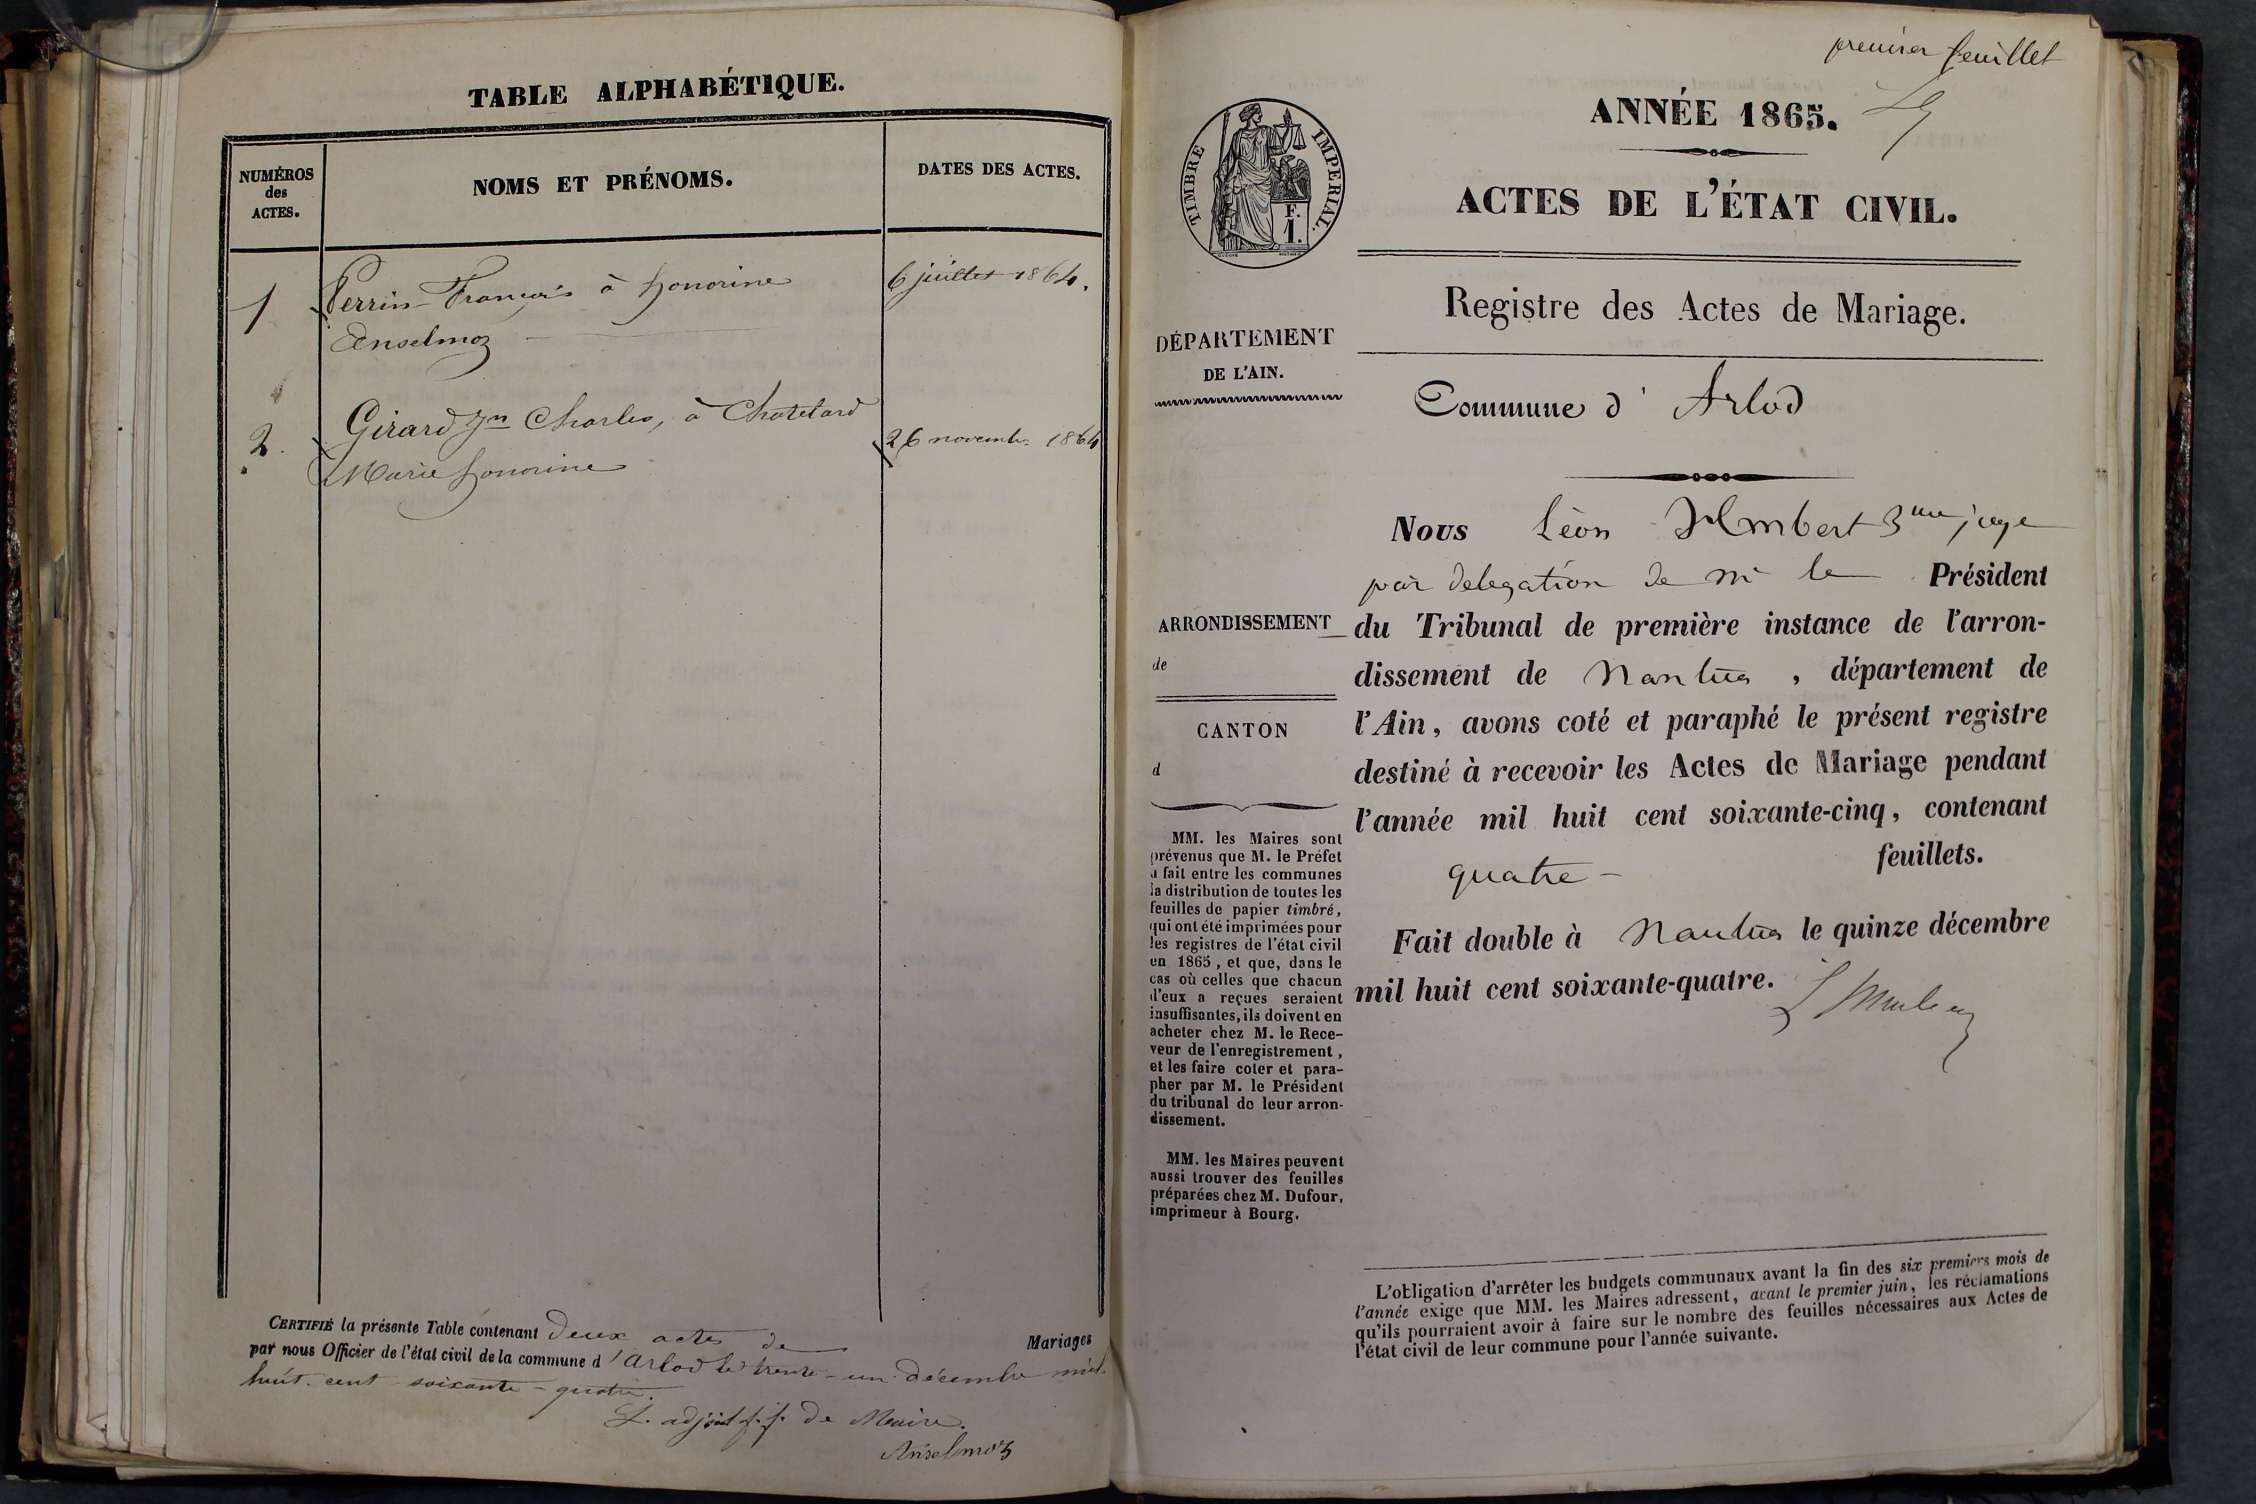 TABLE ALPHABÉTIQUE.
NUMÉROS
des
ACTES.
NOMS ET PRÉNOMS.
DATES DES ACTES.
1
Perrin François à honorine
Anselmoz
6 juillet 1864.
2.
Girard Jn Charles, à Chatelard
Marie honorine
26 novembre 1864
CERTIFIÉ la présente Table contenant deux actes de Mariages
par nous Officier de l'état civil de la commune d'Arlod le trente-un décembre mil
huit cent soixante-quatre.
L. adjoint f.f. de Maire.
Anselmoz
premier feuillet
TIMBRE IMPERIAL.
F.
1.
ANNÉE 1865.
ACTES DE L'ÉTAT CIVIL.
Registre des Actes de Mariage.
DÉPARTEMENT
DE L'AIN.
Commune d' Arlod
ARRONDISSEMENT
de
CANTON
d
MM. les Maires sont
prévenus que M. le Préfet
a fait entre les communes
la distribution de toutes les
feuilles de papier timbré,
qui ont été imprimées pour
les registres de l'état civil
en 1865, et que, dans le
cas où celles que chacun
d'eux a reçues seraient
insuffisantes, ils doivent en
acheter chez M. le Rece-
veur de l'enregistrement,
et les faire coter et para-
pher par M. le Président
du tribunal de leur arron-
dissement.
MM. les Maires peuvent
aussi trouver des feuilles
préparées chez M. Dufour,
imprimeur à Bourg.
Nous Léon Humbert 3me juge
par delegation de mr le Président
du Tribunal de première instance de l'arron-
dissement de Nantua, département de
l'Ain, avons coté et paraphé le présent registre
destiné à recevoir les Actes de Mariage pendant
l'année mil huit cent soixante-cinq, contenant
quatre feuillets.
Fait double à Nantua le quinze décembre
mil huit cent soixante-quatre.
L'obligation d'arrêter les budgets communaux avant la fin des six premiers mois de
l'année exige que MM. les Maires adressent, avant le premier juin, les réclamations
qu'ils pourraient avoir à faire sur le nombre des feuilles nécessaires aux Actes de
l'état civil de leur commune pour l'année suivante.